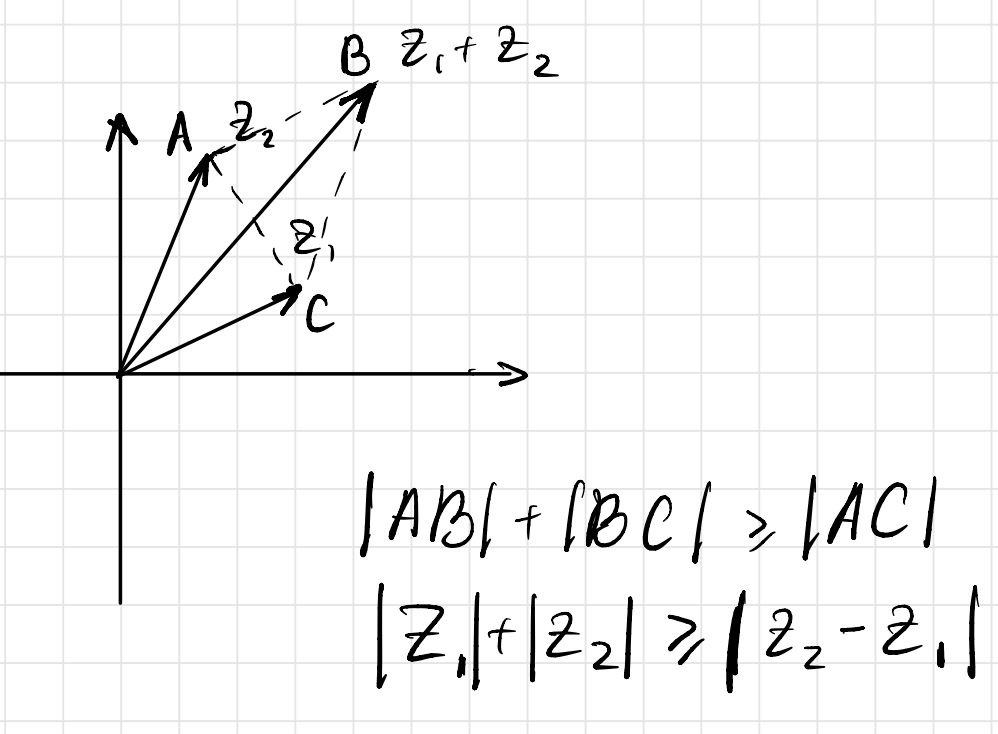 B Z₁ + Z₂
A Z₂
Z₁
C
|AB| + |BC| ⩾ |AC|
|Z₁| + |Z₂| ⩾ |Z₂ - Z₁|